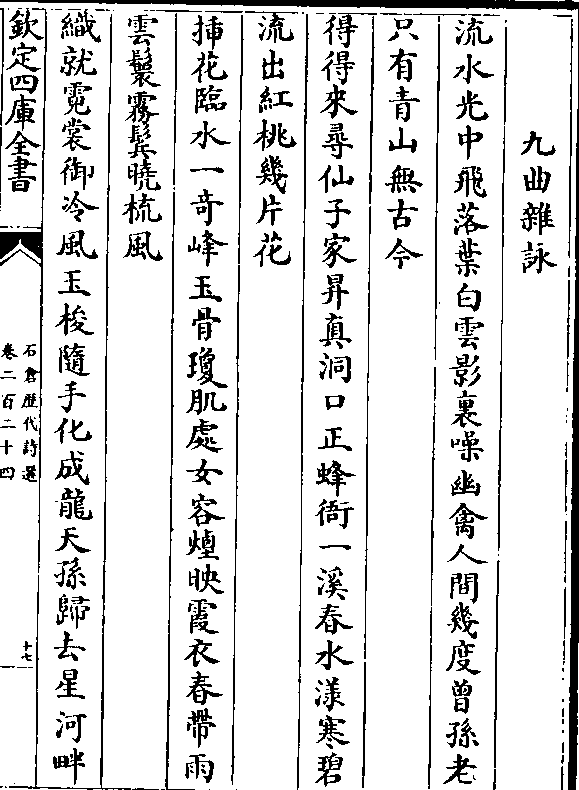 九曲雜詠
流水光中飛落葉白雲影裏噪幽禽人間幾度曾孫老
只有青山無古今
得得來尋仙子家昇真洞口正蜂衙一溪春水漾寒碧
流出紅桃幾片花
挿花臨水一竒峰玉骨瓊肌處女容煙映霞衣春帶雨
雲鬟霧鬂曉梳風
織就霓裳御冷風玉梭隨手化成龍天孫歸去星河畔
欽定四庫全書
石倉歷代詩選
卷二百二十四
十七